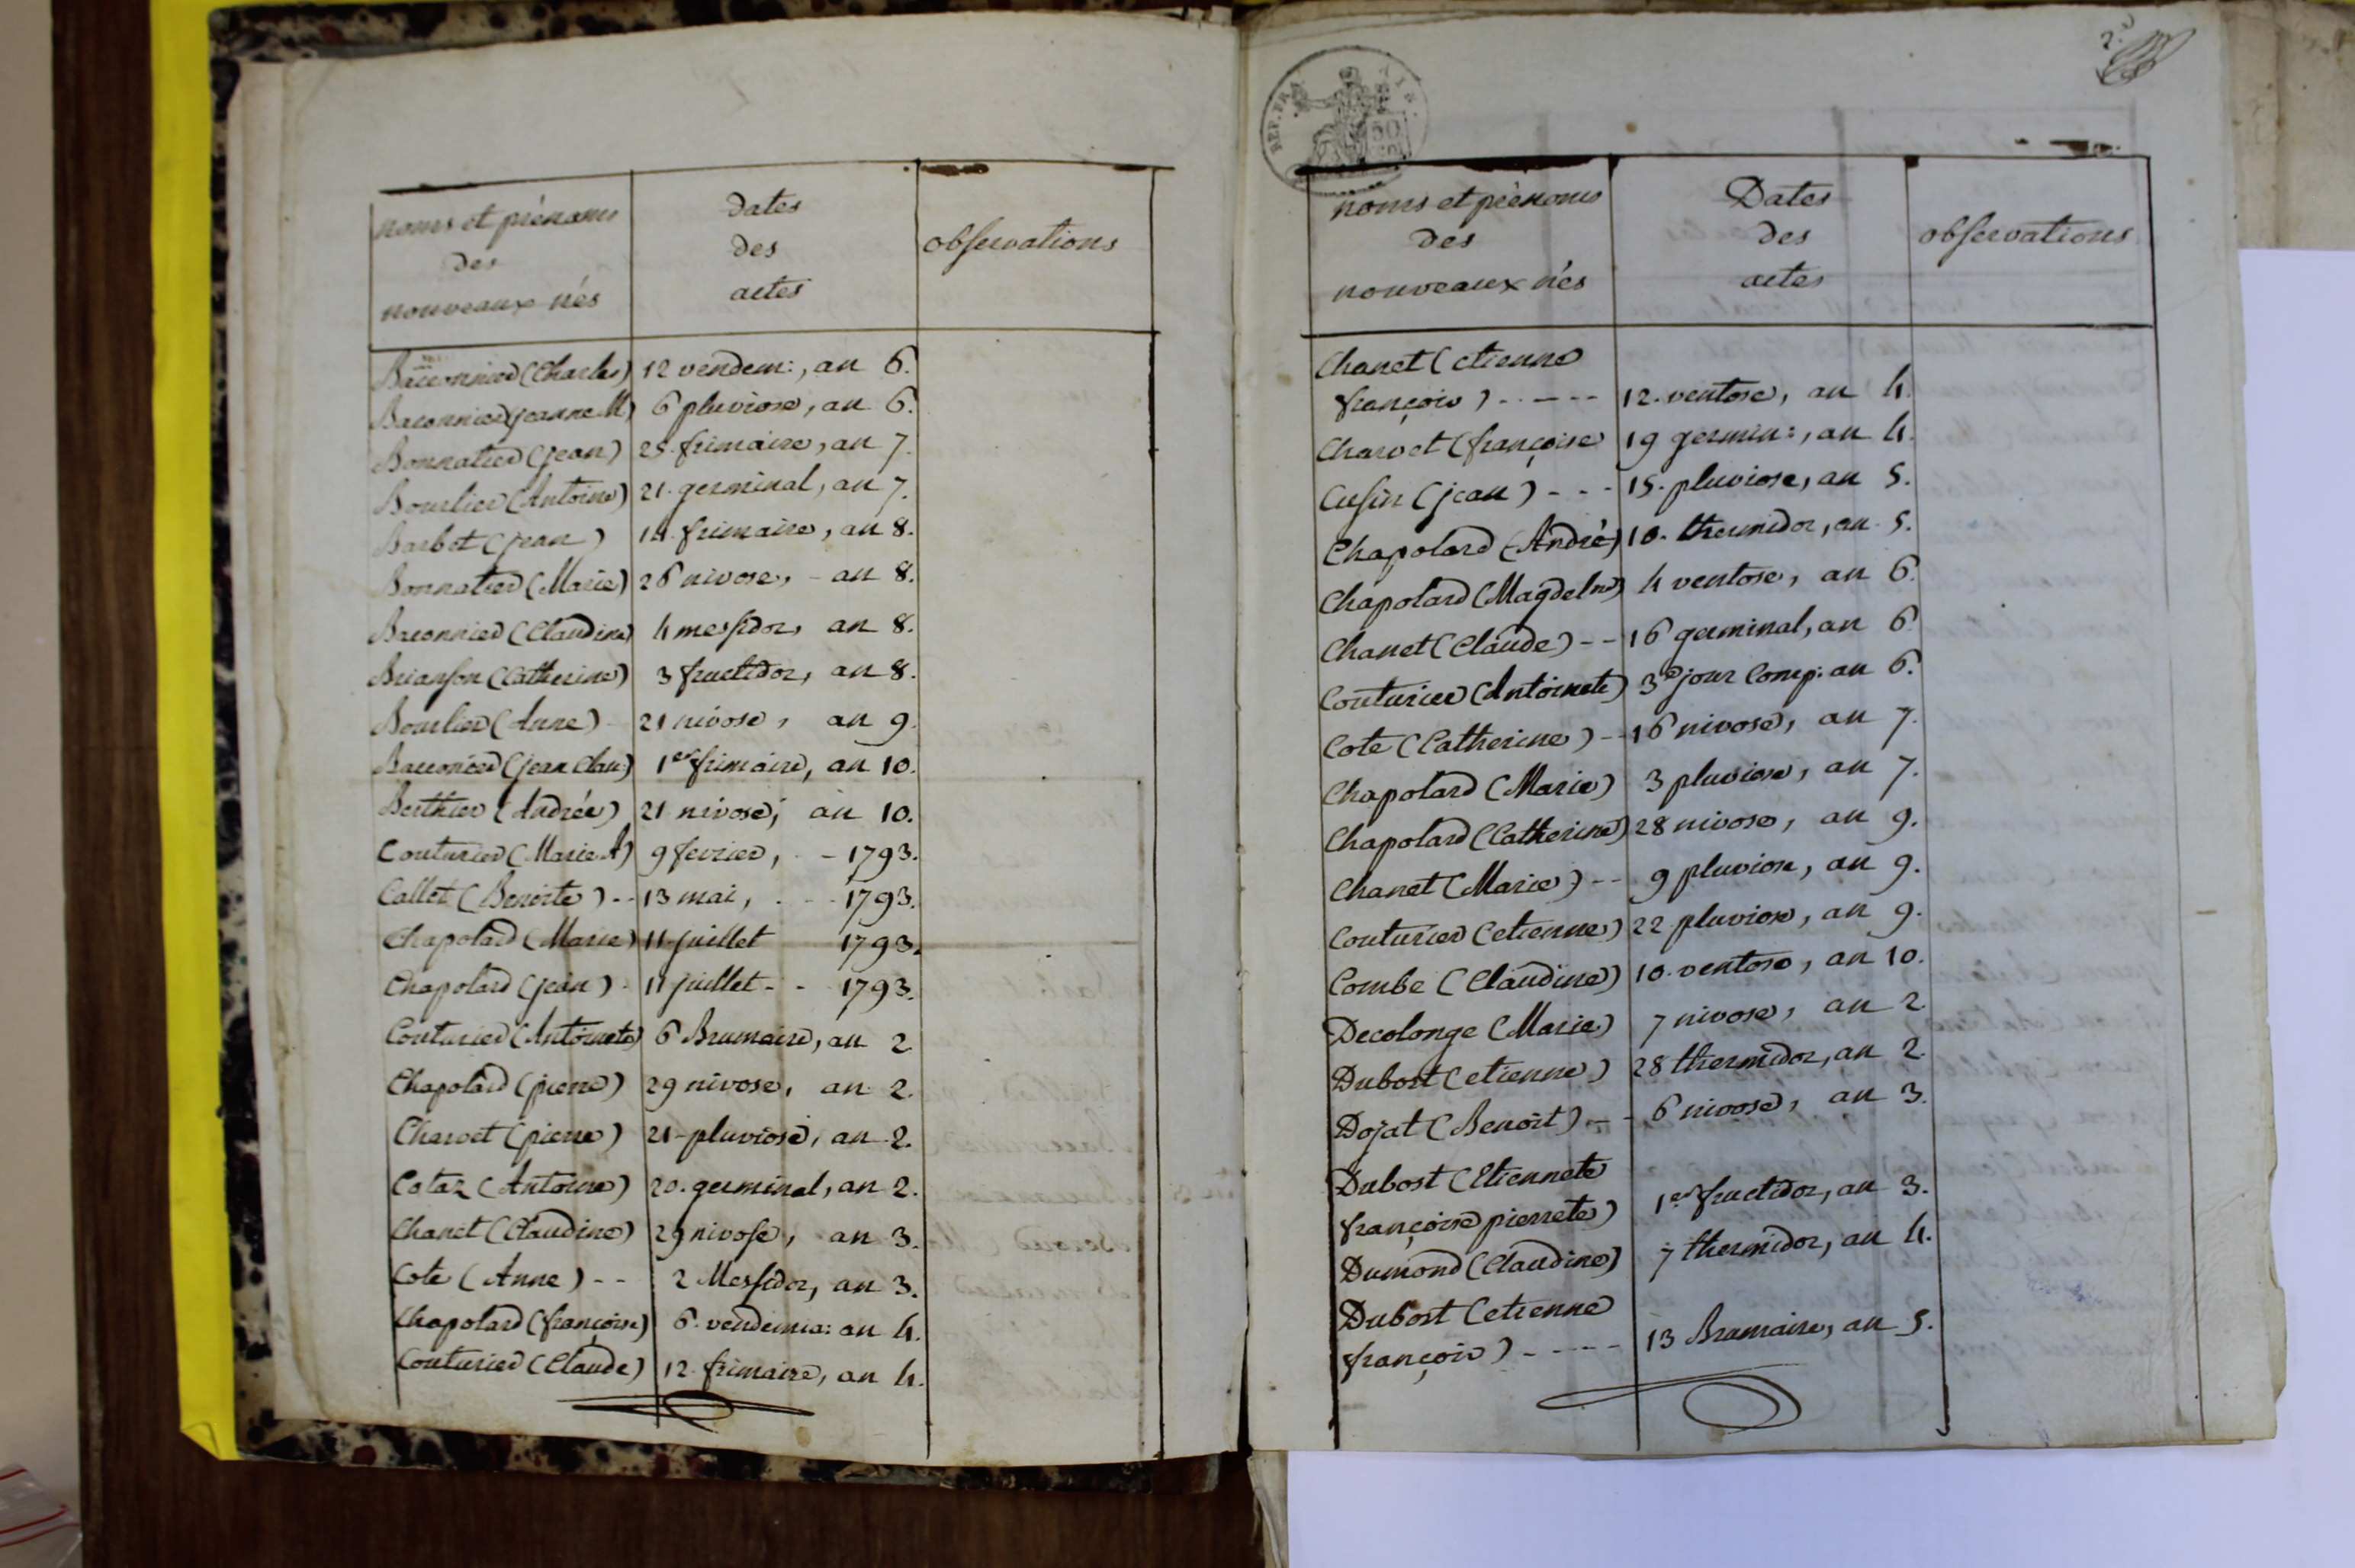 noms et prénoms
des
nouveaux nés
dates
des
actes
observations
Bacconnier (Charles) 12 vendem:, an 6.
Baconnier (jeanne M) 6 pluviose, an 6.
Bonnatier (jean) 25. frimaire, an 7.
Bourlier (Antoine) 21. germinal, an 7.
Barbet (jean) 14. frimaire, an 8.
Bonnatier (Marie) 26 nivose, - an 8.
Baconnier (Claudine) 4 messidor, an 8.
Brianson (Catherine) 3 fructidor, an 8.
Bourlier (Anne) 21 nivose, an 9.
Bacconier (jean Clau:) 1er frimaire, an 10.
Berthier (Andrée) 21 nivose, an 10.
Couturier (Marie A) 9 fevrier, - 1793.
Callet (Benoite) -- 13 mai, - - 1793.
Chapolard (Marie) 11 juillet 1793.
Chapolard (jean) - 11 juillet - - 1793.
Couturier (Antoinete) 6 Brumaire, an 2
Chapolard (pierre) 29 nivose, an 2.
Charvet (pierre) 21 - pluviose, an 2.
Cotaz (Antoine) 20. germinal, an 2.
Chanet (Claudine) 29 nivose, an 3.
Cote (Anne) -- 2 Messidor, an 3.
Chapolard (françoise) 6. vendemia: an 4.
Couturier (Claude) 12. frimaire, an 4.
REP. FRA
50
2.
noms et prénoms
des
nouveaux nés
Dates
des
actes
observations
Chanet (etienne
françois) - - --- 12. ventose, an 4.
Charvet (françoise 19 germin:, an 4.
Cusin (jean) - - - 15. pluviose, an 5.
Chapolard (André) 10. thermidor, an 5.
Chapolard (Magdelne) 4 ventose, an 6.
Chanet (Claude) -- 16 germinal, an 6.
Couturier (Antoinete) 3e jour Comp: an 6.
Cote (Catherine) -- 16 nivose, an 7.
Chapolard (Marie) 3 pluviose, an 7.
Chapolard (Catherine) 28 nivose, an 9.
Chanet (Marie) -- 9 pluviose, an 9.
Couturier (etienne) 22. pluviose, an 9.
Combe (Claudine) 10. ventose, an 10.
Decolonge (Marie) 7 nivose, an 2
Dubost (etienne) 28 thermidor, an 2.
Dojat (Benoit) -- - 6 nivose, an 3.
Dubost (Etiennete
françoise pierrete) 1er fructidor, an 3.
Dumond (Claudine) 7 thermidor, an 4.
Dubost (etienne
françois) - ---- 13 Brumaire, an 5.